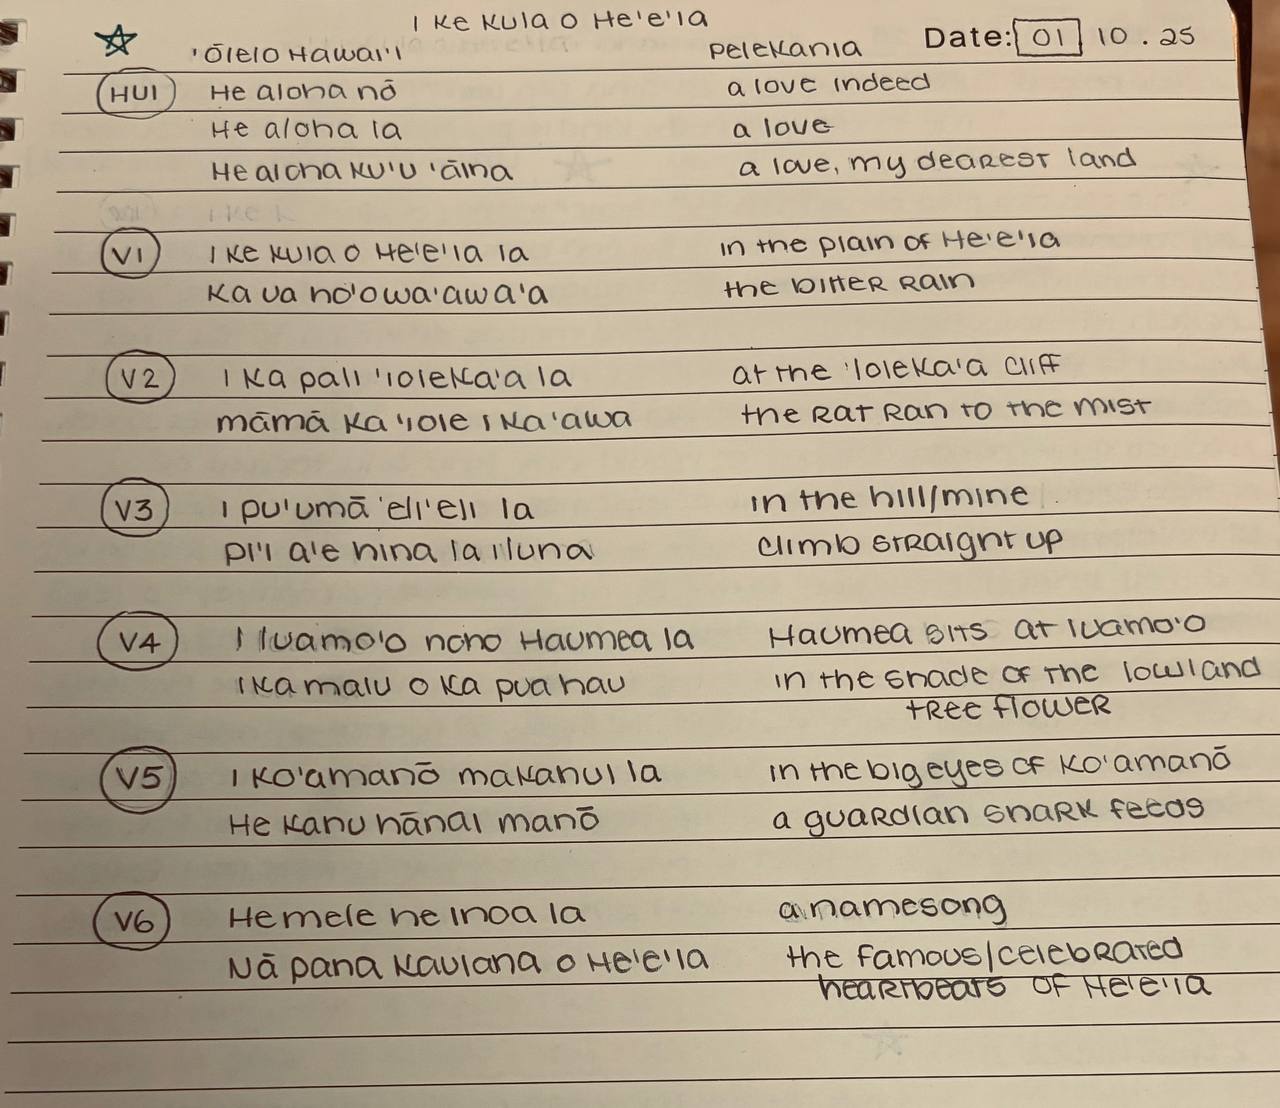 I Ke Kula O He'e'ia
'Ōlelo Hawai'i Pelekania Date: 01 10 . 25
HUI He aloha nō a love indeed
He aloha la a love
He aloha ku'u 'āina a love, my dearest land
V1 I ke kula o He'e'ia la in the plain of He'e'ia
Ka ua nō'owa'awa'a the bitter rain
V2 I ka pali 'ioleka'a la at the 'ioleka'a cliff
māmā ka 'iole i ka 'awa the rat ran to the mist
V3 I pu'umā 'eli'eli la in the hill/mine
pi'i a'e nina la iluna climb straight up
V4 I luamo'o noho Haumea la Haumea sits at luamo'o
I ka malu o ka pua hau in the shade of the lowland
tree flower
V5 I Ko'amanō makanui la in the big eyes of Ko'amanō
He kahu hānai manō a guardian shark feeds
V6 He mele he inoa la a namesong
Nā pana kaulana o He'e'ia the famous/celebrated
heartbeats of He'e'ia